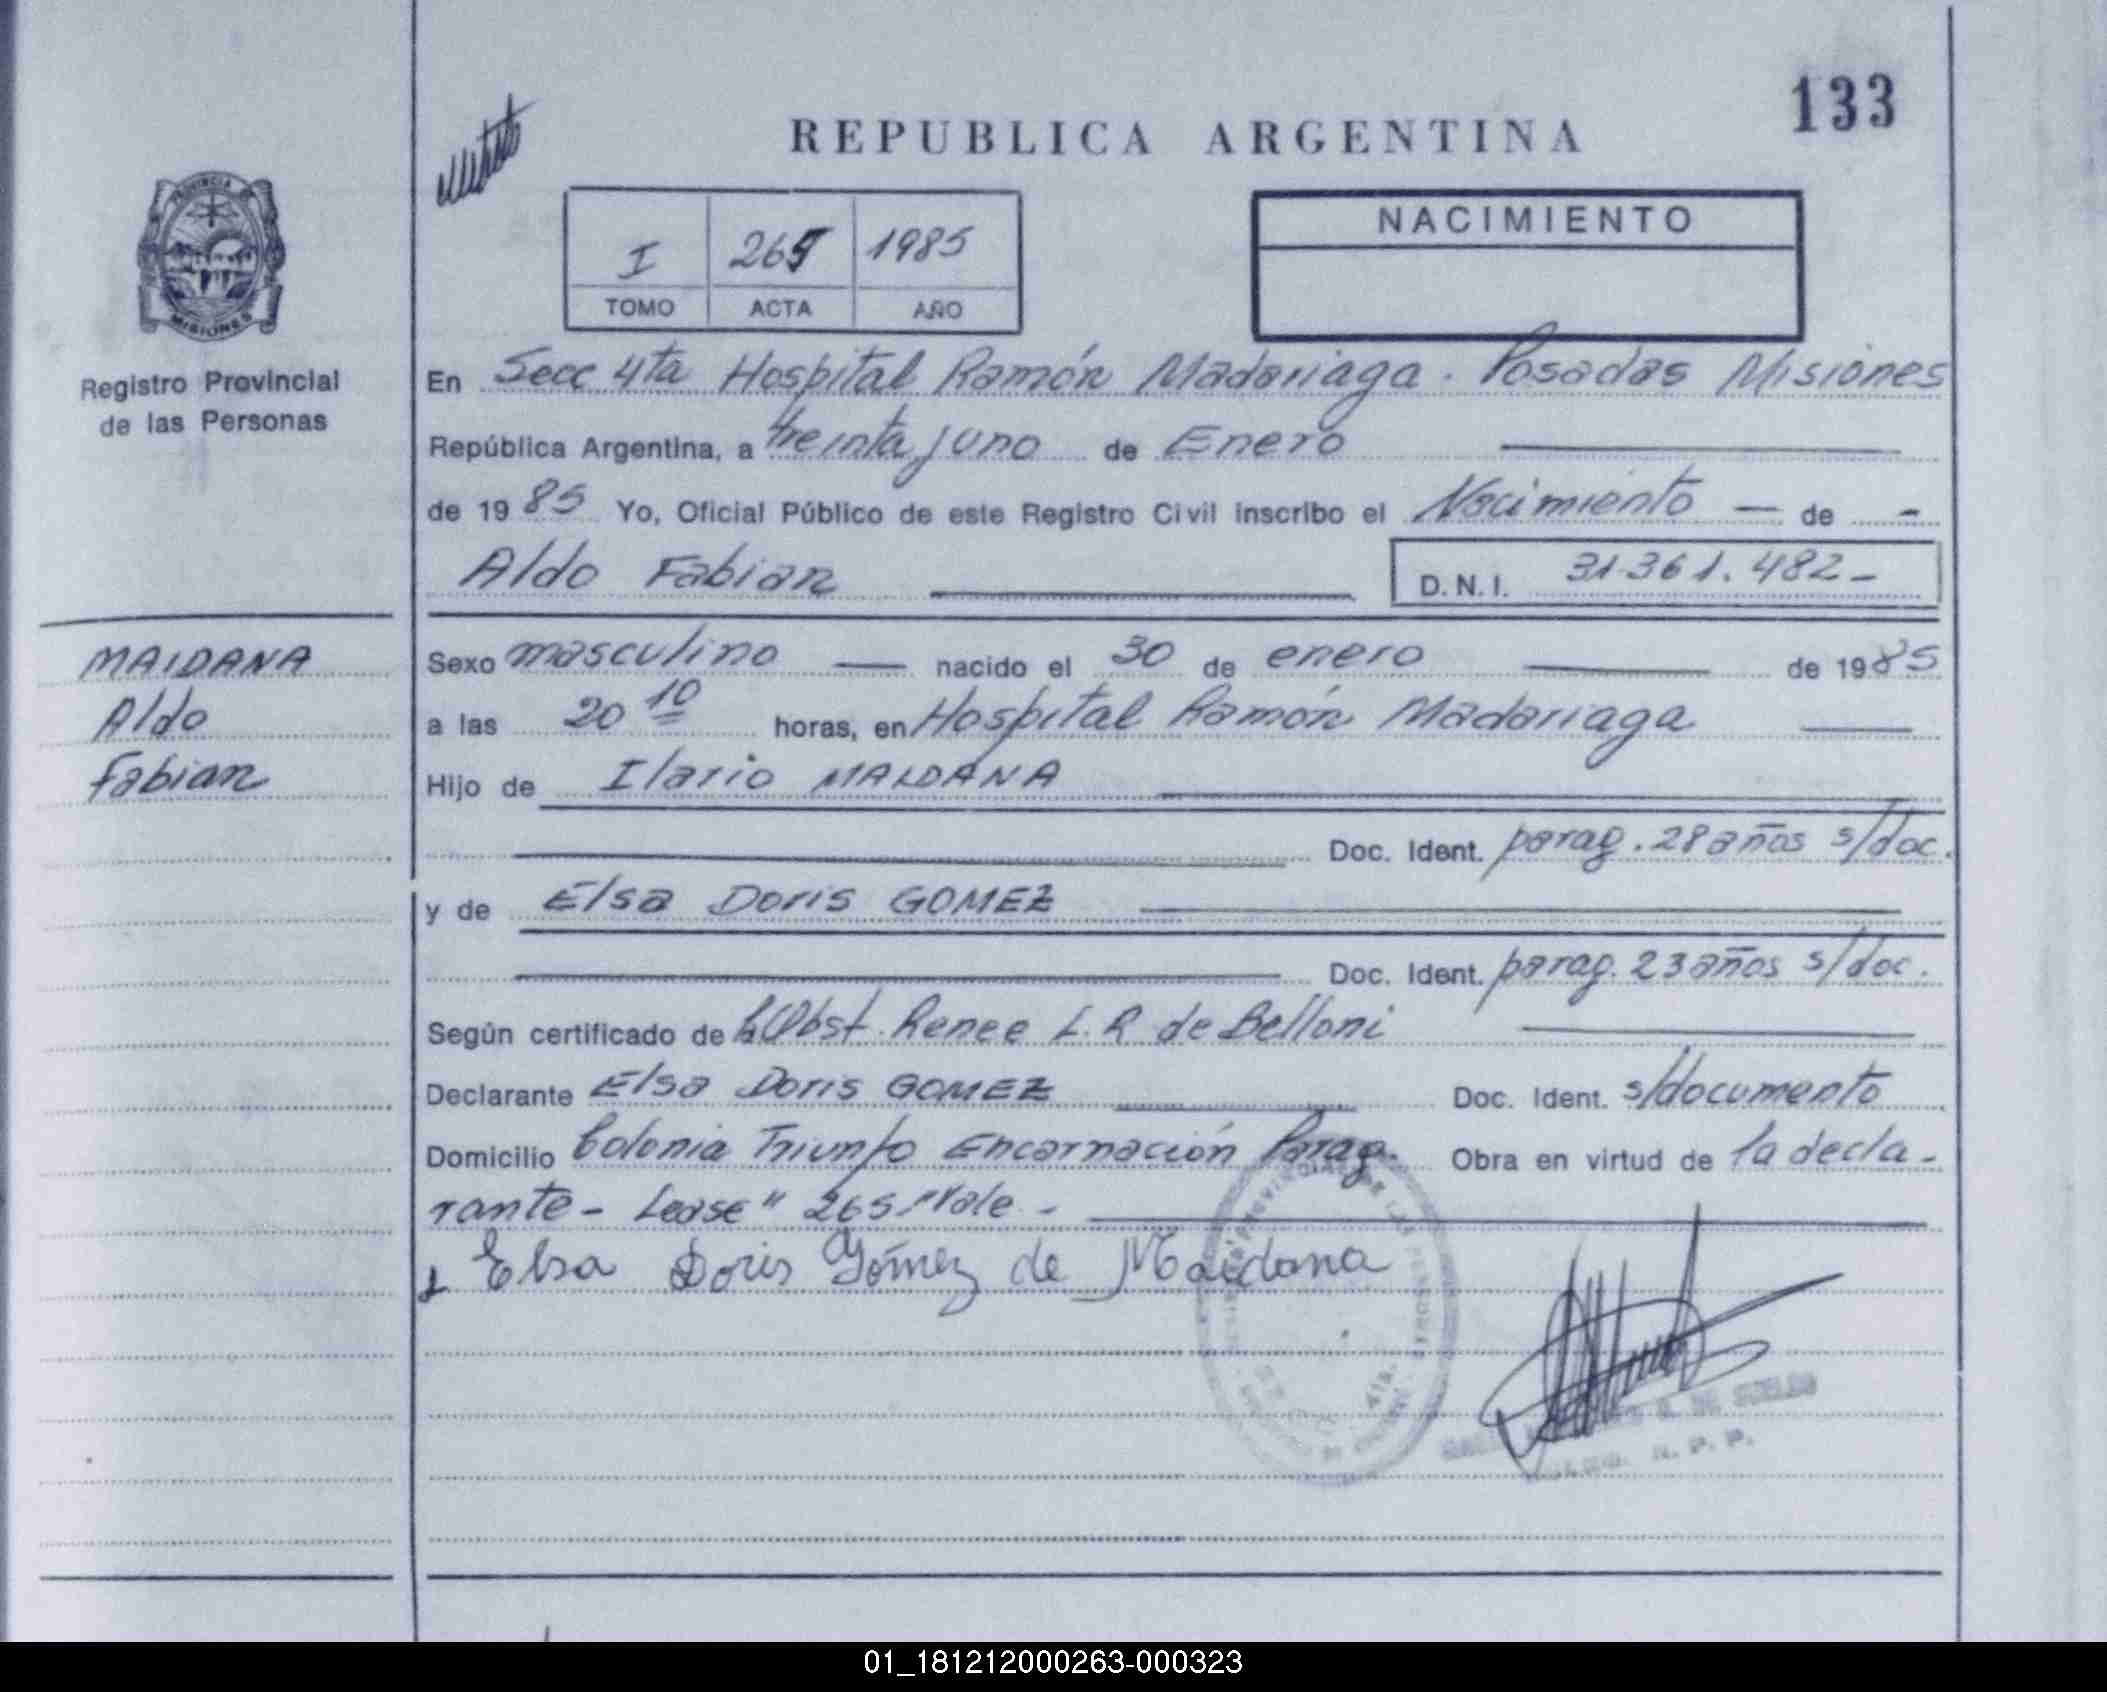 133
REPUBLICA ARGENTINA
PROVINCIA DE
MISIONES
Registro Provincial
de las Personas
I 265 1985
TOMO ACTA AÑO
NACIMIENTO
En Secc 4ta Hospital Ramón Madariaga. Posadas Misiones
República Argentina, a treinta y uno de Enero
de 1985 Yo, Oficial Público de este Registro Civil inscribo el Nacimiento — de -
Aldo Fabian
D.N.I. 31.361.482-
MAIDANA
Aldo
Fabian
Sexo masculino — nacido el 30 de enero de 1985
a las 20 10 horas, en Hospital Ramón Madariaga
Hijo de Ilario MAIDANA
Doc. Ident. parag. 28 años s/doc.
y de Elsa Doris GOMEZ
Doc. Ident. parag. 23 años s/doc.
Según certificado de Obst. Renee L. R de Belloni
Declarante Elsa Doris GOMEZ Doc. Ident. s/documento
Domicilio Colonia Triunfo Encarnación Parag. Obra en virtud de la decla-
rante - Lease " 265 " Vale -
Elsa Doris Gómez de Maidana
DE LAS
R. P. P.
01_181212000263-000323